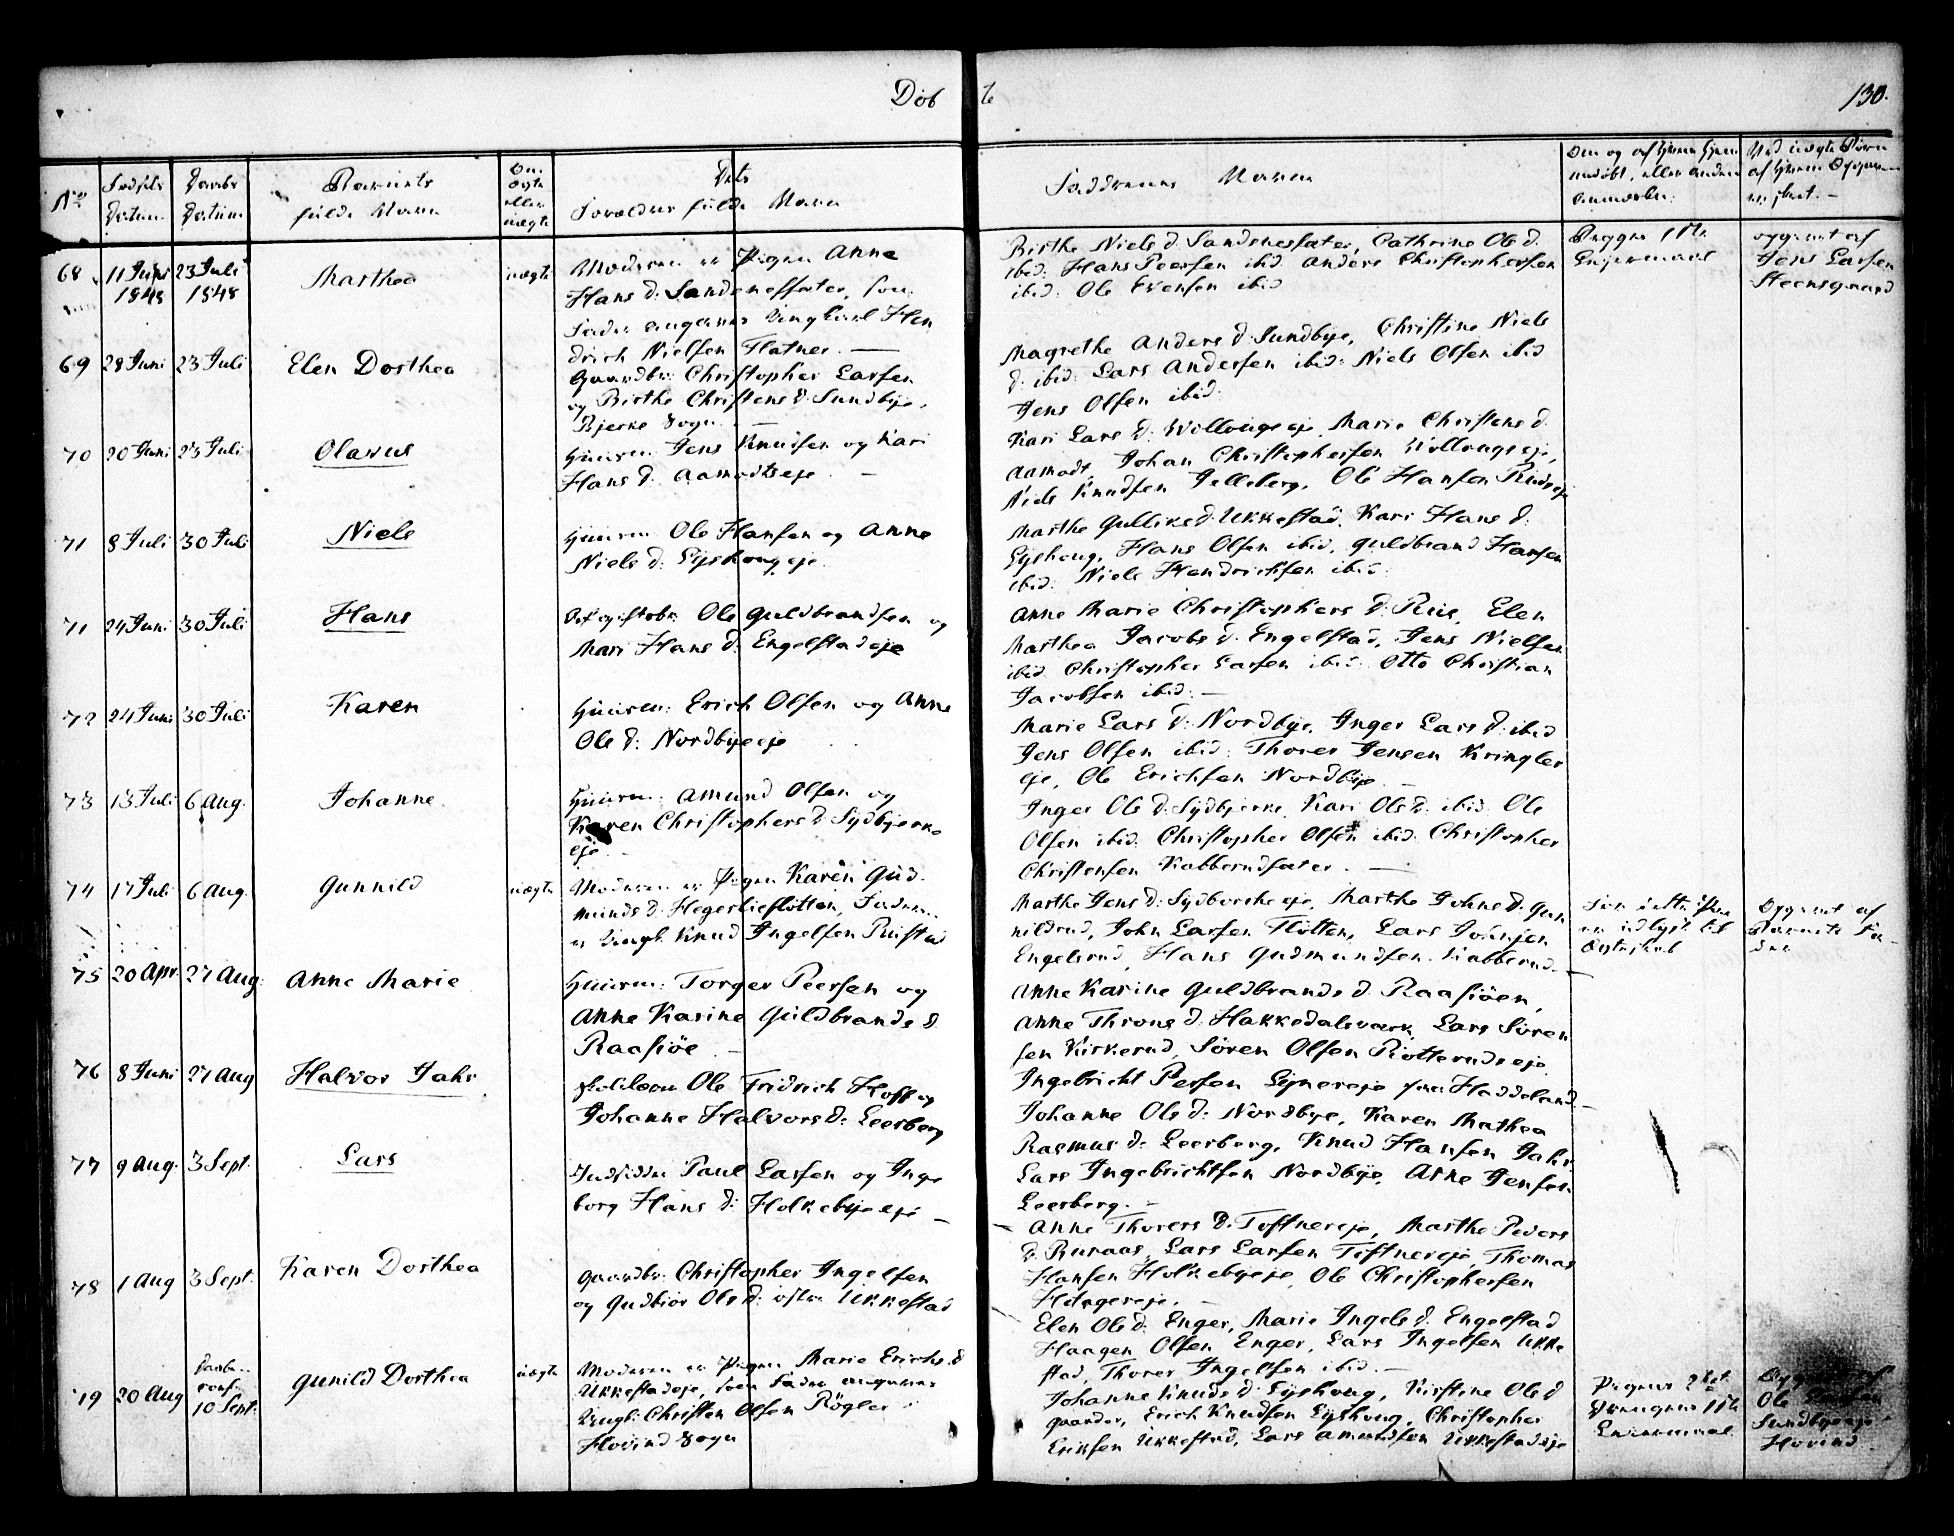 Døb
te
130.
No
Fødsels
Datum
Daabs
Datum
Barnets
fulde Navn
Om
ægte
eller
uægte
Dets
Forældres fulde Navn
Faddernes Navne
68
11 Juni
1848
23 Juli
1848
Marthea
uægte
Moderen er Pigen Anne
Hans d: Sandenessæter, som
Fader angives Ungkarl Hen
drich Nielsen Flatner. —
Birthe Niels d. Sandenessæter, Cathrine Ole d.
ibid: Hans Peersen ibid. Anders Christophersen
ibid: Ole Evensen ibid
Begges 1ste
Leiermaal
opgivet af
Jens Larsen
Steensgaard
69
28 Juni
23 Juli
Elen Dorthea
Gaardbr: Christopher Larsen
og Birthe Christens d. Sundbye,
Bjerke Sogn. —
Magrethe Anders d. Sundbye, Christine Niels
d: ibid: Lars Andersen ibid: Niels Olsen ibid
Jens Olsen ibid:
70
20 Juni
23 Juli
Olavus
Huusm: Jens Knudsen og Kari
Hans d: Aamodtseje. —
Kari Lars d: Wollougseje, Marie Christens d.
Aamodt, Johan Christophersen Wollougseje,
Niels Knudsen Jelleberg, Ole Hansen Rudseje
71
8 Juli
30 Juli
Niels
Huusm: Ole Hansen og Anne
Niels d: Lyshougeje.
Marthe Gulliks d. Ukkestad, Kari Hans d:
Lyshoug, Hans Olsen ibid, Guldbrand Hansen
ibid: Niels Hendrichsen ibid:
71
24 Juni
30 Juli
Hans
Ole Guldbrandsen og
Mari Hans d: Engelstadeje
Anne Marie Christophers d: Rise, Elen
Marthea Jacobs d. Engelstad, Jens Nielsen
ibid Christopher Larsen ibid: Otto Christian
Jacobsen ibid: —
72
24 Juni
30 Juli
Karen
Huusm: Erich Olsen og Anne
Ole d: Nordbyeeje
Marie Lars d: Nordbye, Inger Lars d: ibid
Jens Olsen ibid: Thorer Jensen Kringler
eje, Ole Erichsen Nordbye. —
73
13 Juli
6 Aug.
Johanne
Huusm: Amund Olsen og
Karen Christophers d Sydbjerke
eje. —
Inger Ole d: Sydbjerke, Kari Ole d. ibid. Ole
Olsen ibid: Christopher Olsen ibid: Christopher
Christensen Kabberudsæter. —
74
17 Juli
6 Aug.
Gunnild
uægte
Moderen er Pigen Karen Gud
munds d: Hegerlieflötten, Faderen
er Ungk. Knud Ingelsen Ruistad
Marthe Jens d: Sydborskeeje, Marthe Johns d: Gun
nildrud, John Larsen Flötten, Lars Johnsen
Engelsrud, Hans Gudmundsen Kabberud. —
er udlyst til
Ægteskab
Opgivet af
Barnets Fa
der
75
20 Apr.
27 Aug:
Anne Marie
Huusm: Torger Peersen og
Anne Karine Guldbrands d.
Raasjöe. —
Anne Karine Guldbrands d Raasjöen,
Anne Throns d: Hakkedalsværk, Lars Sören
sen Kirkerud, Sören Olsen Rotterudseje
Ingebricht Persen Lynereje paa Haddeland. —
76
8 Juni
27 Aug
Halvor Jahr
Ole Fridrich Hoff og
Johanne Halvors d: Leerberg
Johanne Ole d: Nordbye, Karen Mathea
Rasmus d: Leerberg, Knud Hansen Jahr
Lars Ingebrichtsen Nordbye, Arne Jensen
Leerberg. —
77
9 Aug.
3 Sept.
Lars
Indsidder Paul Larsen og Inge
borg Hans d: Holkebyeeje —
Anne Thorers d. Toftnereje, Marthe Peders
d: Ruraas, Lars Larsen Toftnereje, Thomas
Hansen Holkebyeeje, Ole Christophersen
78
1 Aug
3 Sept.
Karen Dorthea
Gaardbr: Christopher Ingelsen
og Gudbjør Ole d: østre Ukkestad
Elen Ole d: Enger, Marie Ingels d. Engelstad
Haagen Olsen Enger, Lars Ingelsen Ukke
stad, Thorer Ingelsen ibid. —
79
20 Aug
Daaben
conf.
10 Sept.
Gunild Dorthea
uægte
Moderen er Pigen Marie Erichs d
Ukkestadeje, som Fader angives
Ungk: Christen Olsen Rögler
Hovind Sogn
Johanne Knuds d: Lyshoug, Kirstine Ole d
Gaarder, Erich Knudsen Lyshoug, Christopher
Eriksen Ukkestad, Lars Amundsen Ukkestadeje
Pigens 2det
Drengens 1ste
Leiermaal
Opgivet af
Ole Larsen
Sundbyeeje
Hovind